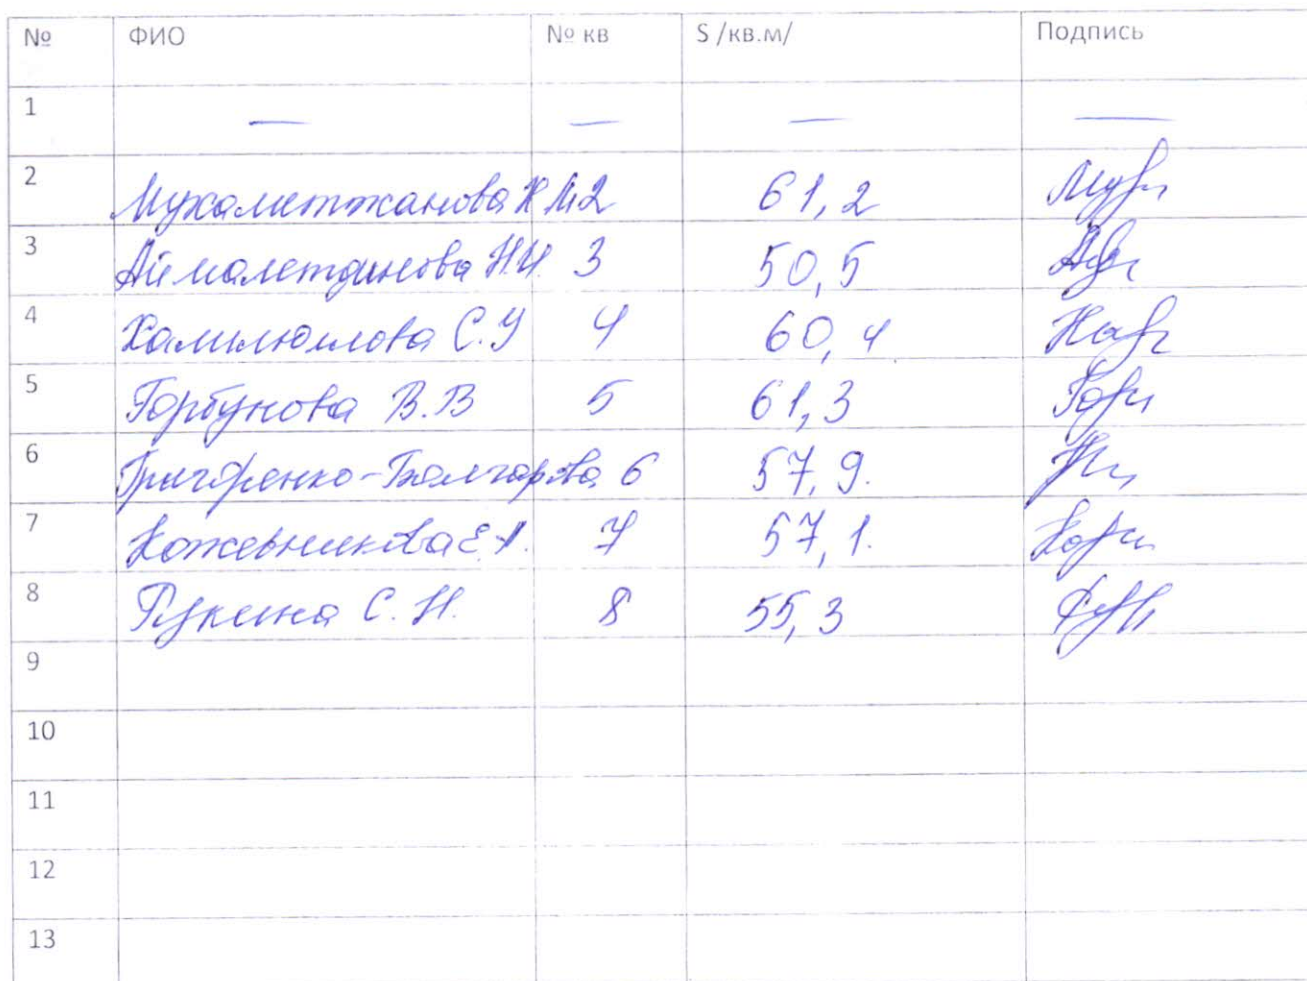 № ФИО № кв S /кв.м/ Подпись
1 — — — —
2 Мухаметжанова Н М. 2 61,2
3 Аймалетдинова Н.И. 3 50,5
4 С.У 4 60,4
5 Горбунова В.В 5 61,3
6 Григоренко-Балгарова 6 57,9.
7 Кожевникова Е.А. 7 57,1.
8 С. Н. 8 55,3
9
10
11
12
13